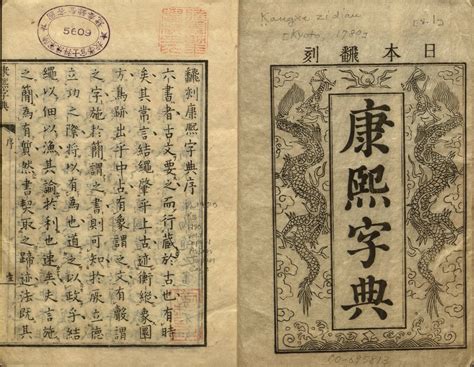 Kangxi zidian
(Kyoto, 1780)
日本翻刻
康熙字典
5609
飜刻康熙字典序
六書者古文要之而行蔵於古也有時
矣其常言結繩肇乎上古迹衡縱象圖
方馬跡出乎中古有像謂之文有謂
之字施於簡謂之書則可知於厥立德
立功之際將以有為也道之以政乎結
繩以佃以漁其諭於利也速矣史言施
之簡為有然書契取之歸迹法既其
康熙字典
序